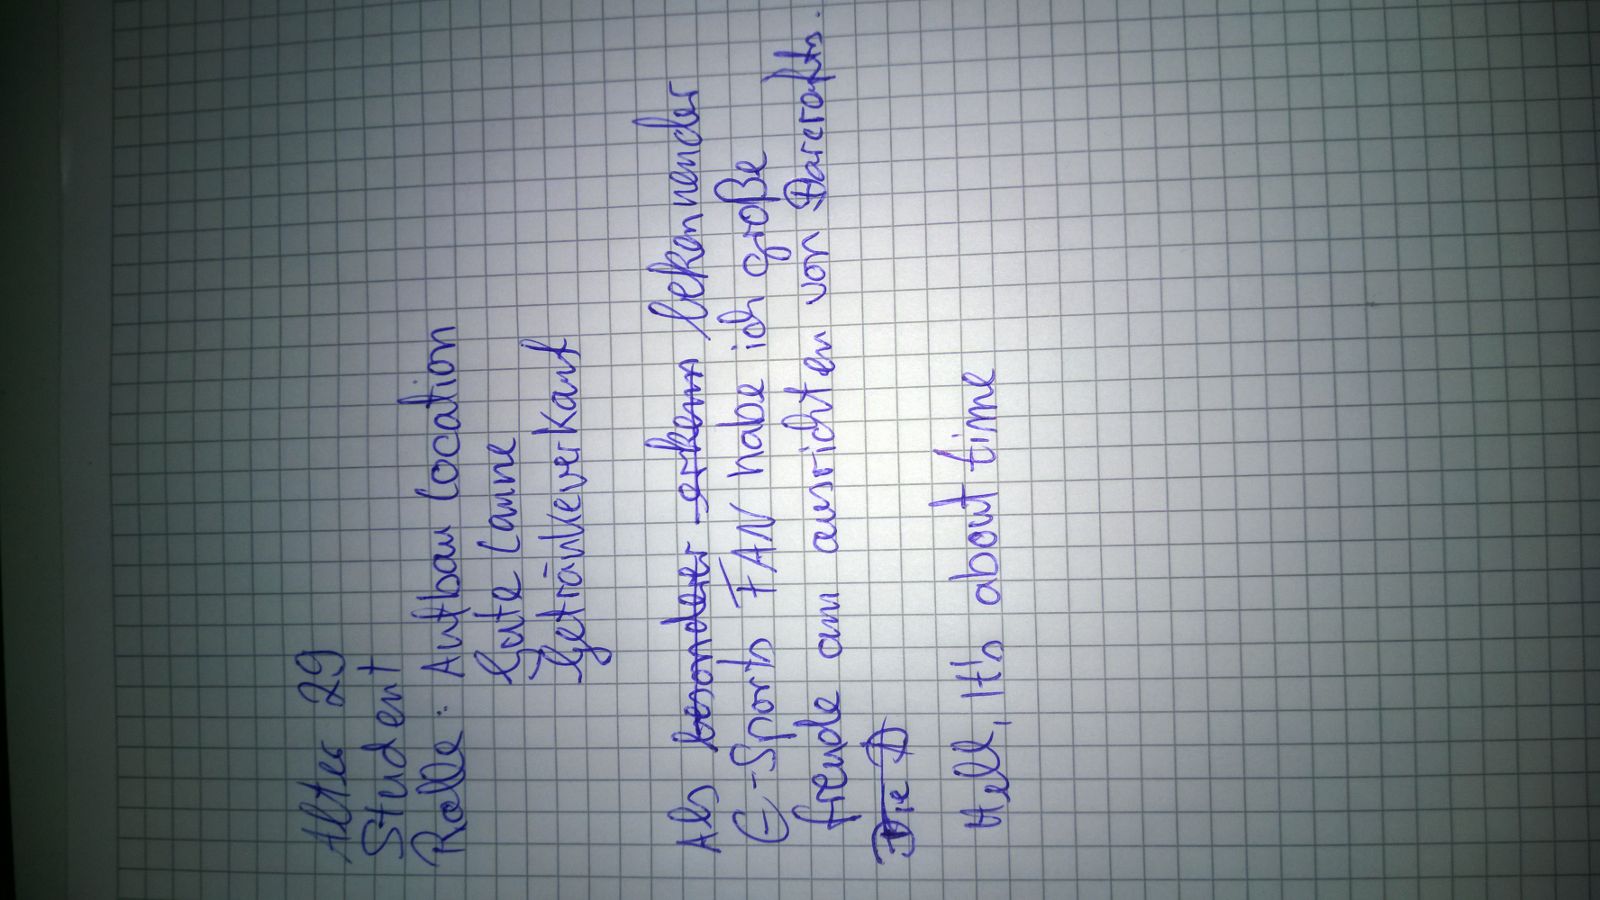 Alter 29
Student
Rolle: Aufbau Location
Gute Laune
Getränkeverkauf
Als besonder erkenn bekennender
E-Sports FAN habe ich große
freude am ausrichten von Barcrafts.
Die B
Hell, It's about time